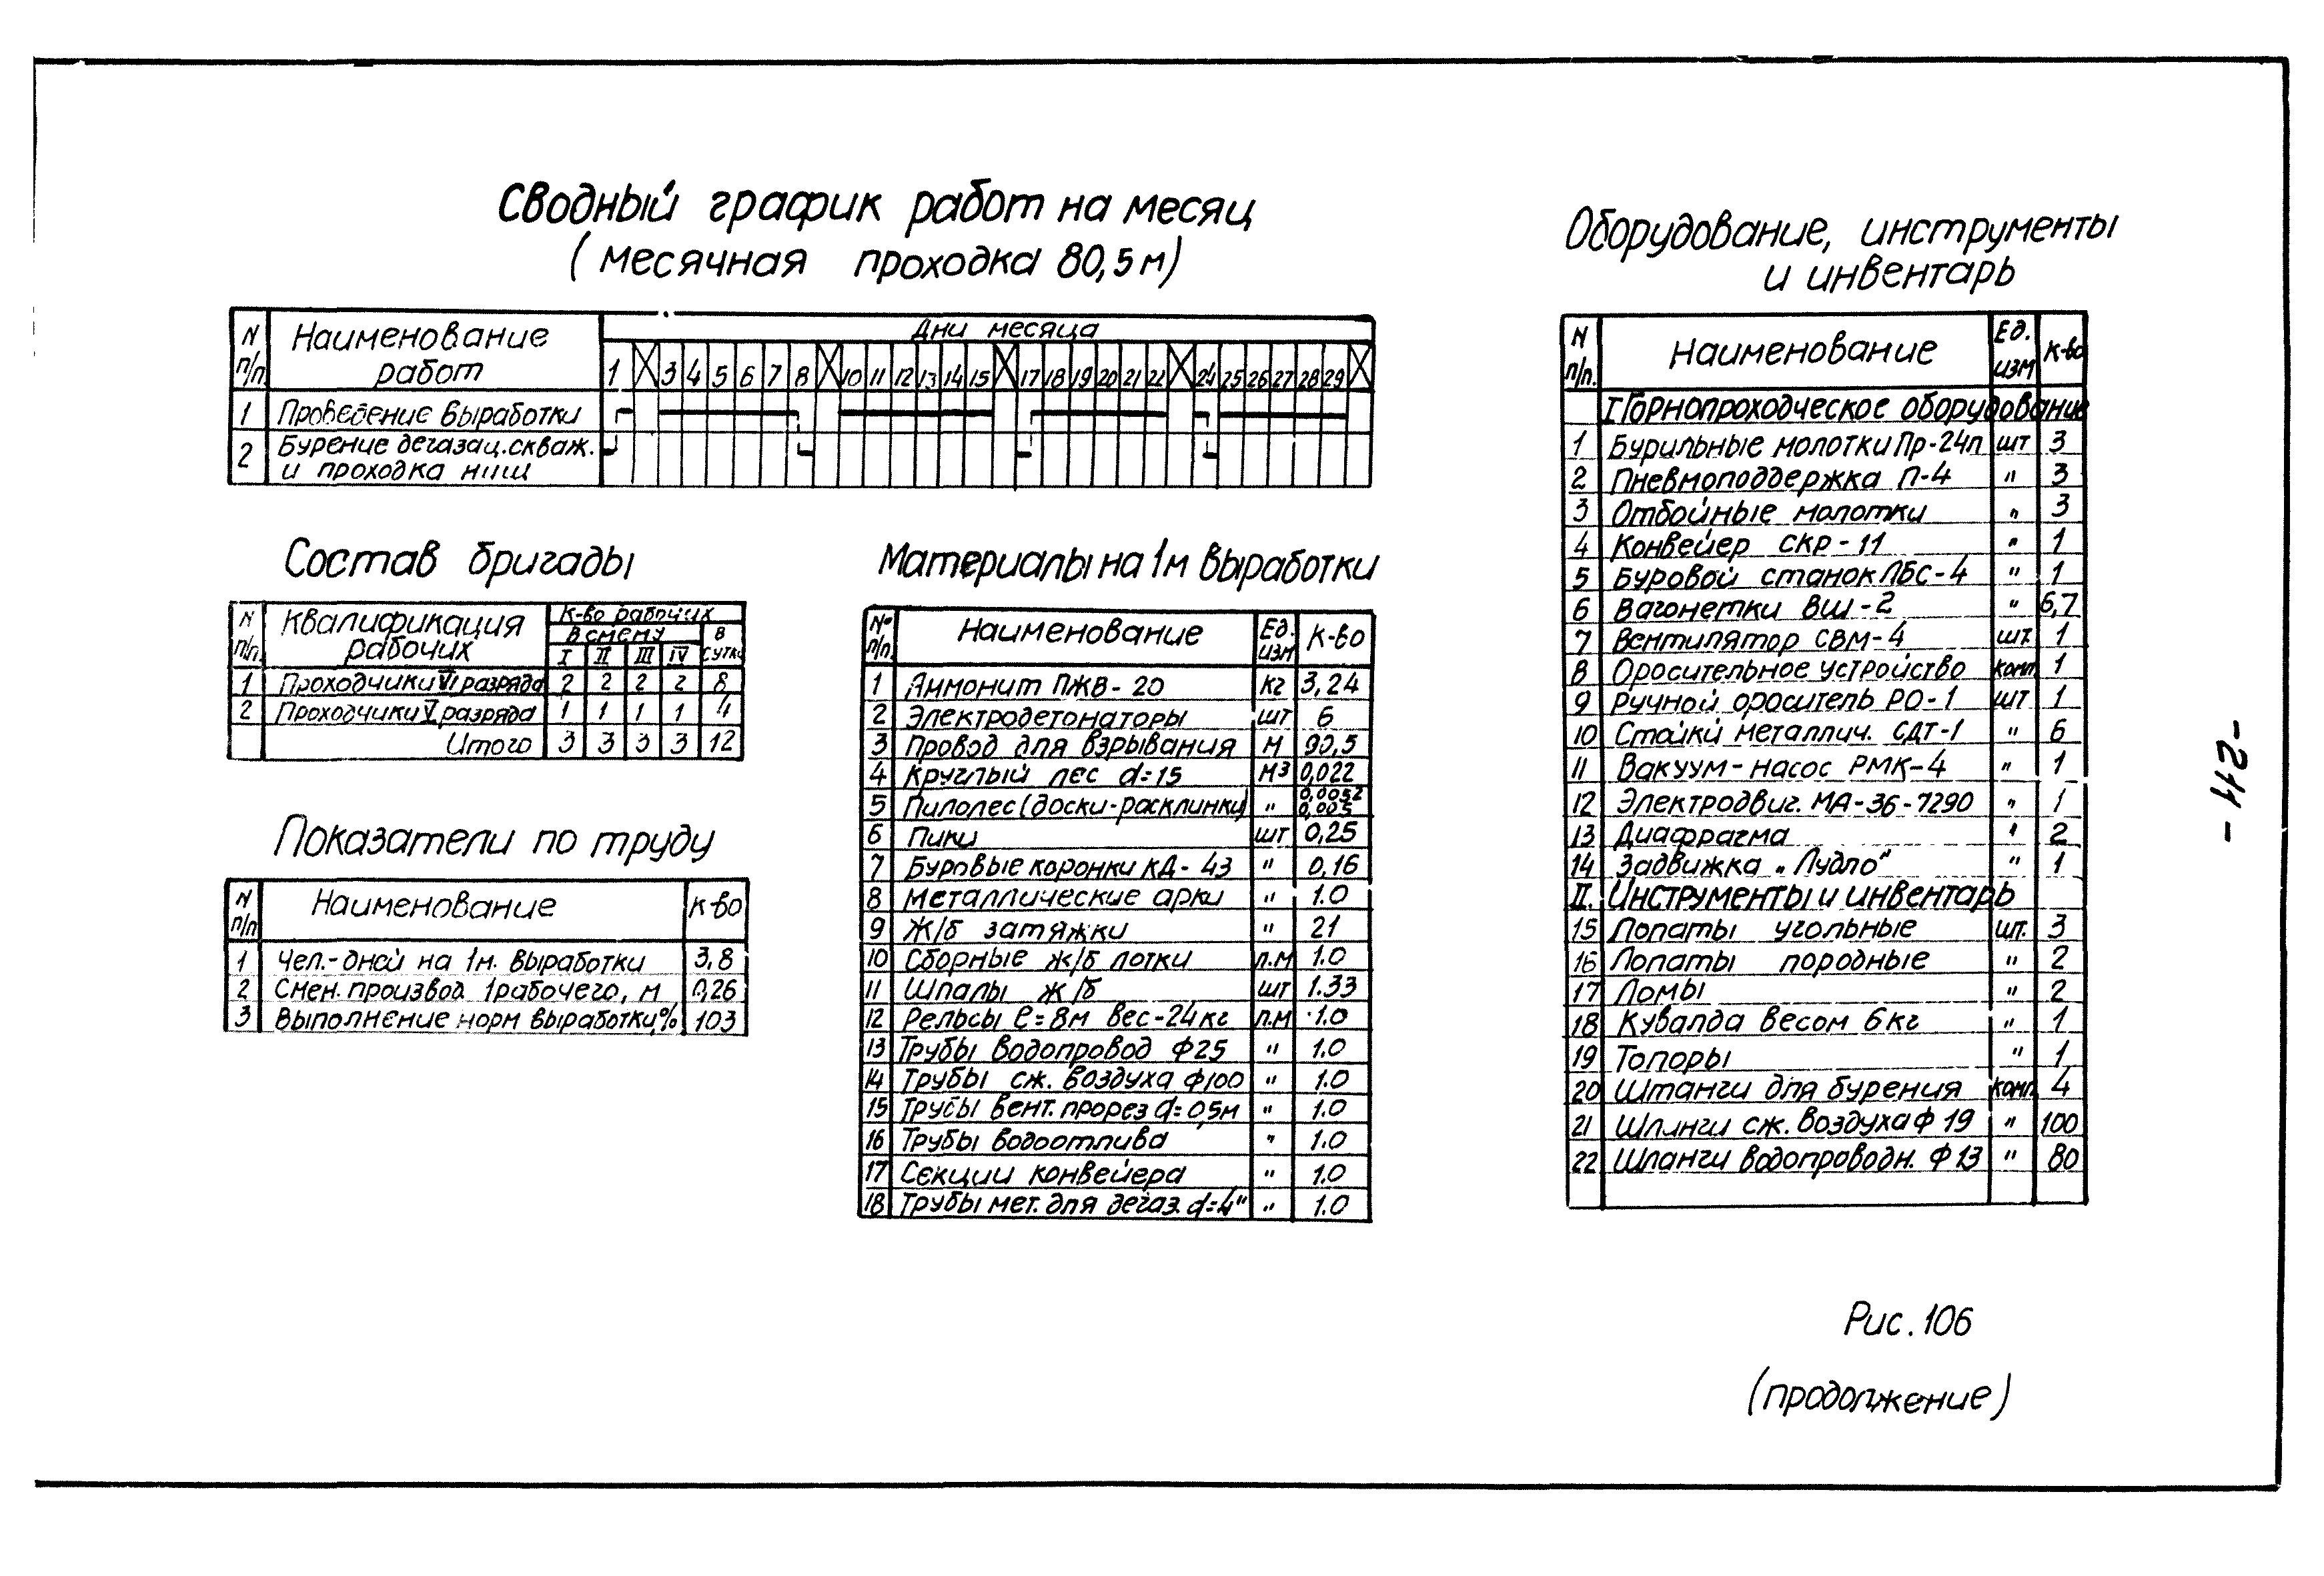 Сводный график работ на месяц
(месячная проходка 80,5м)
N п/п Наименование работ Дни месяца
1 3 4 5 6 7 8 10 11 12 13 14 15 17 18 19 20 21 22 24 25 26 27 28 29
1 Проведение выработки
2 Бурение дегазац. скваж.
и проходка ниш
Состав бригады
N п/п. Квалификация рабочих К-во рабочих
в смену в сутки
I II III IV
1 Проходчики VI разряда 2 2 2 2 8
2 Проходчики V разряда 1 1 1 1 4
Итого 3 3 3 3 12
Показатели по труду
N п/п Наименование К-во
1 Чел.-дней на 1м. выработки 3,8
2 Смен. производ. 1рабочего, м 0,26
3 Выполнение норм выработки,% 103
Материалы на 1м выработки
Nº п/п Наименование Ед. изм К-во
1 Аммонит ПЖВ-20 кг 3,24
2 Электродетонаторы шт 6
3 Провод для взрывания м 90,5
4 Круглый лес d=15 м3 0,022
5 Пилолес (доски-расклинки) " 0,0052
0,005
6 Пики шт 0,25
7 Буровые коронки КД-43 " 0,16
8 Металлические арки " 1.0
9 Ж/б затяжки " 21
10 Сборные ж/б лотки п.м 1.0
11 Шпалы ж/б шт 1.33
12 Рельсы ℓ=8м вес-24кг п.м 1.0
13 Трубы водопровод Ф25 " 1.0
14 Трубы сж. воздуха Ф100 " 1.0
15 Трубы вент. прорез d=0,5м " 1.0
16 Трубы водоотлива " 1.0
17 Секции конвейера " 1.0
18 Трубы мет. для дегаз. d=4" " 1.0
Оборудование, инструменты
и инвентарь
N п/п. Наименование Ед. изм К-во
I Горнопроходческое оборудование
1 Бурильные молотки Пр-24л шт 3
2 Пневмоподдержка П-4 " 3
3 Отбойные молотки " 3
4 Конвейер СКР-11 " 1
5 Буровой станок ЛБС-4 " 1
6 Вагонетки ВШ-2 " 6,7
7 Вентилятор СВМ-4 шт. 1
8 Оросительное устройство комп. 1
9 Ручной ороситель РО-1 шт 1
10 Стойки металлич. СДТ-1 " 6
11 Вакуум-насос РМК-4 " 1
12 Электродвиг. МА-36-7290 " 1
13 Диафрагма " 2
14 Задвижка „Лудло" " 1
II. Инструменты и инвентарь
15 Лопаты угольные шт. 3
16 Лопаты породные " 2
17 Ломы " 2
18 Кувалда весом 6кг " 1
19 Топоры " 1
20 Штанги для бурения комп. 4
21 Шланги сж. воздуха Ф 19 " 100
22 Шланги водопроводн. Ф 13 " 80
Рис. 106
(продолжение)